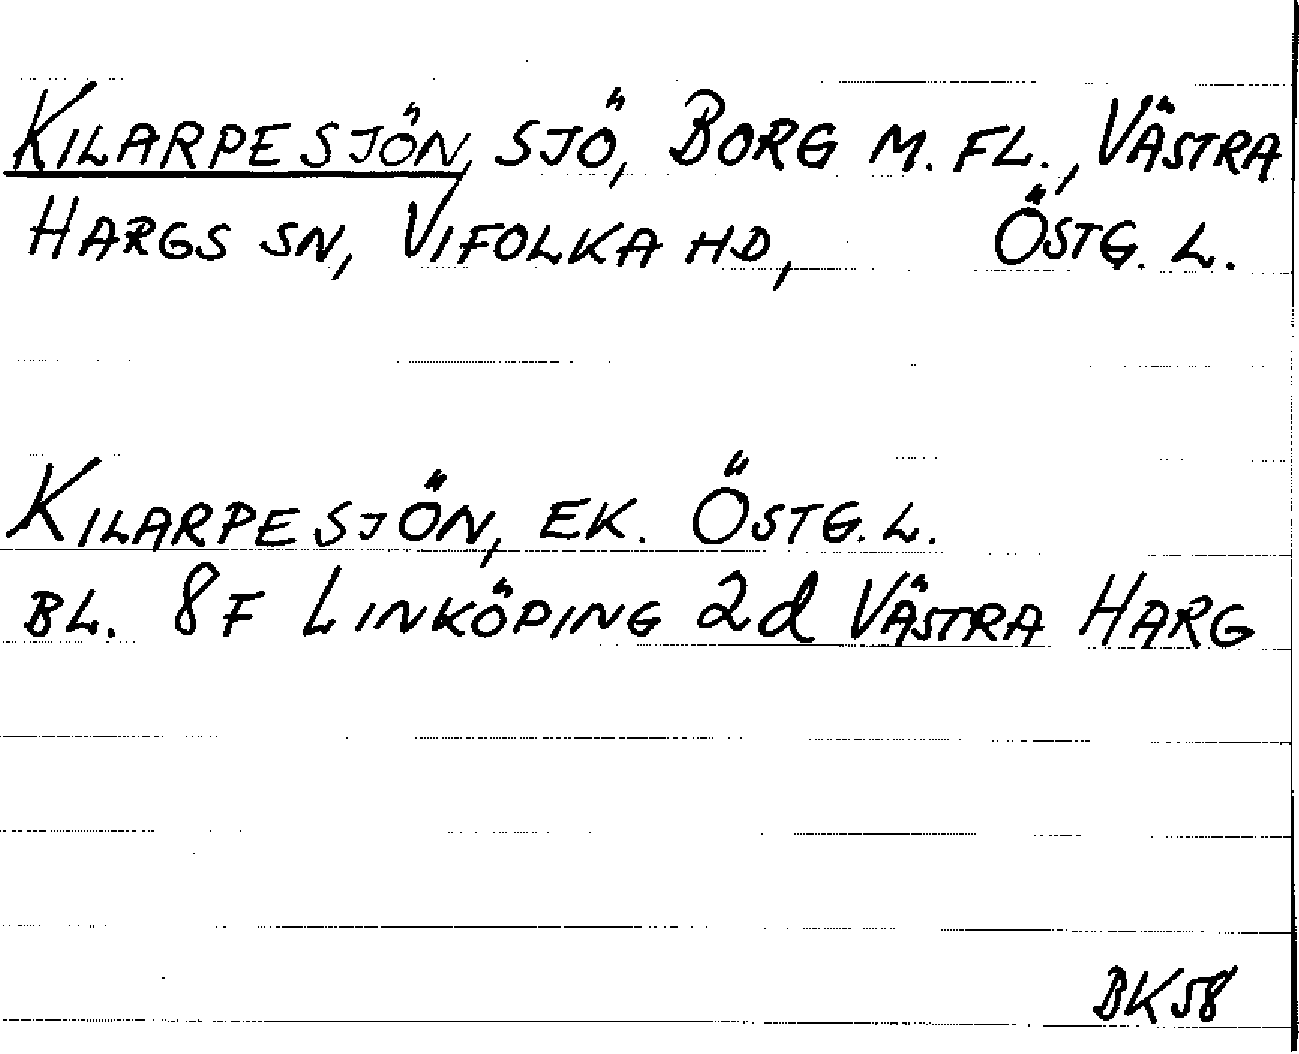 KILARPESJÖN, SJÖ, BORG M. FL., VÄSTRA
HARGS SN, VIFOLKA HD, ÖSTG. L.
KILARPESJÖN, EK. ÖSTG. L.
BL. 8F LINKÖPING 2d VÄSTRA HARG
BK58